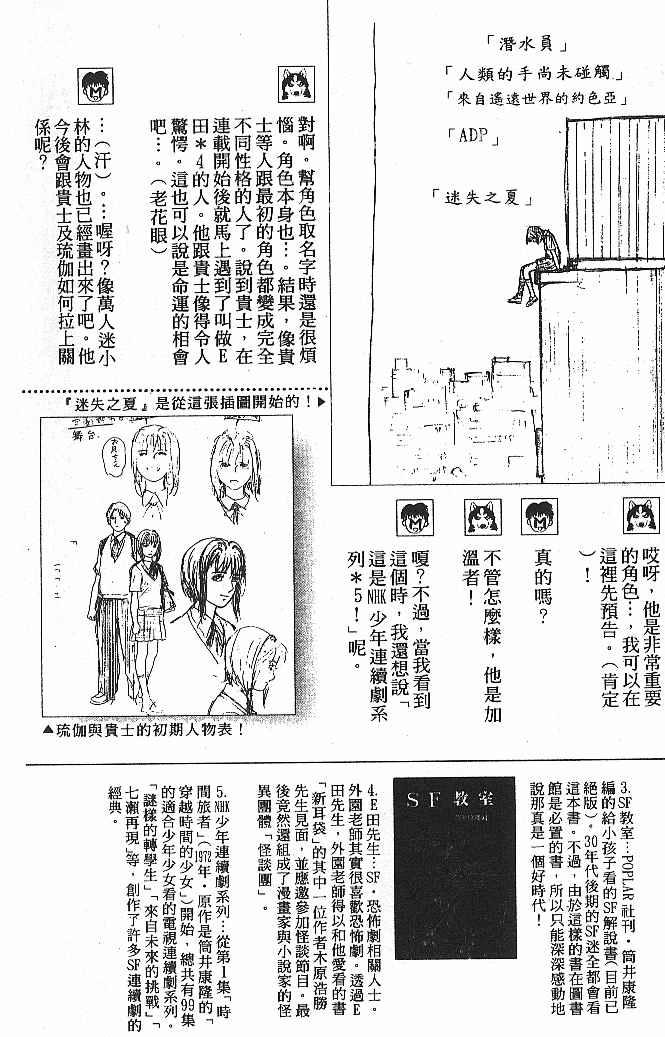 「潛水員」
「人類的手尚未碰觸」
「來自遙遠世界的約色亞」
「ADP」
「迷失之夏」
對啊。幫角色取名字時還是很煩
惱。角色本身也…。結果，像貴
士等人跟最初的角色都變成完全
不同性格的人了。說到貴士，在
連載開始後就馬上遇到了叫做E
田＊4的人。他跟貴士像得令人
驚愕。這也可以說是命運的相會
吧…。（老花眼）
…（汗）。…喔呀？像萬人迷小
林的人物也已經畫出來了吧。他
今後會跟貴士及琉伽如何拉上關
係呢？
哎呀，他是非常重要
的角色…，我可以在
這裡先預告。（肯定
）！
真的嗎？
不管怎麼樣，他是加
溫者！
嗄？不過，當我看到
這個時，我還想說「
這是NHK少年連續劇系
列＊5！」呢。
『迷失之夏』是從這張插圖開始的！▶
舞台
▲琉伽與貴士的初期人物表！
3. SF教室…POPLAR社刊・筒井康隆
編的給小孩子看的SF解說書（目前已
絕版）。30年代後期的SF迷全都會看
這本書。不過，由於這樣的書在圖書
館是必置的書，所以只能深深感動地
說那真是一個好時代！
SF教室
4. E田先生…SF・恐怖劇相關人士。
外園老師其實很喜歡恐怖劇。透過E
田先生，外園老師得以和他愛看的書
「新耳袋」的其中一位作者木原浩勝
先生見面，並應邀參加怪談節目。最
後竟然還組成了漫畫家與小說家的怪
異團體「怪談團」。
5. NHK少年連續劇系列…從第1集「時
間旅者」（1972年・原作是筒井康隆的「
穿越時間的少女」）開始，總共有99集
的適合少年少女看的電視連續劇系列。
「謎樣的轉學生」「來自未來的挑戰」「
七瀨再現」等，創作了許多SF連續劇的
經典。